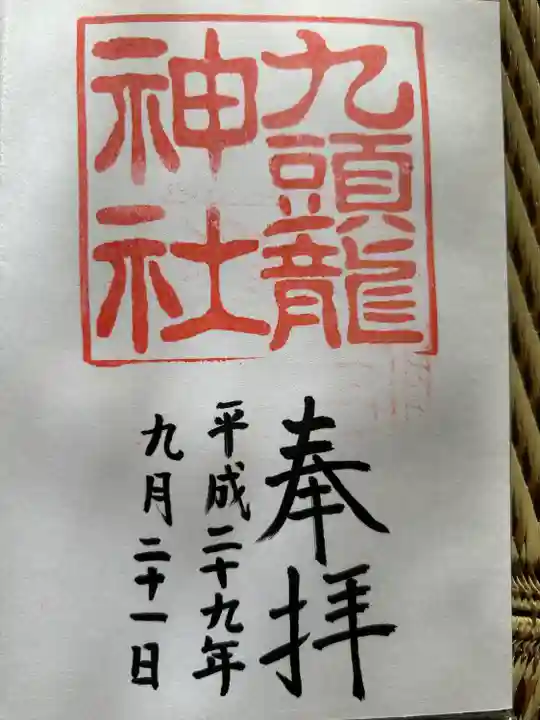 九頭龍
神社
奉拝
平成二十九年
九月二十一日